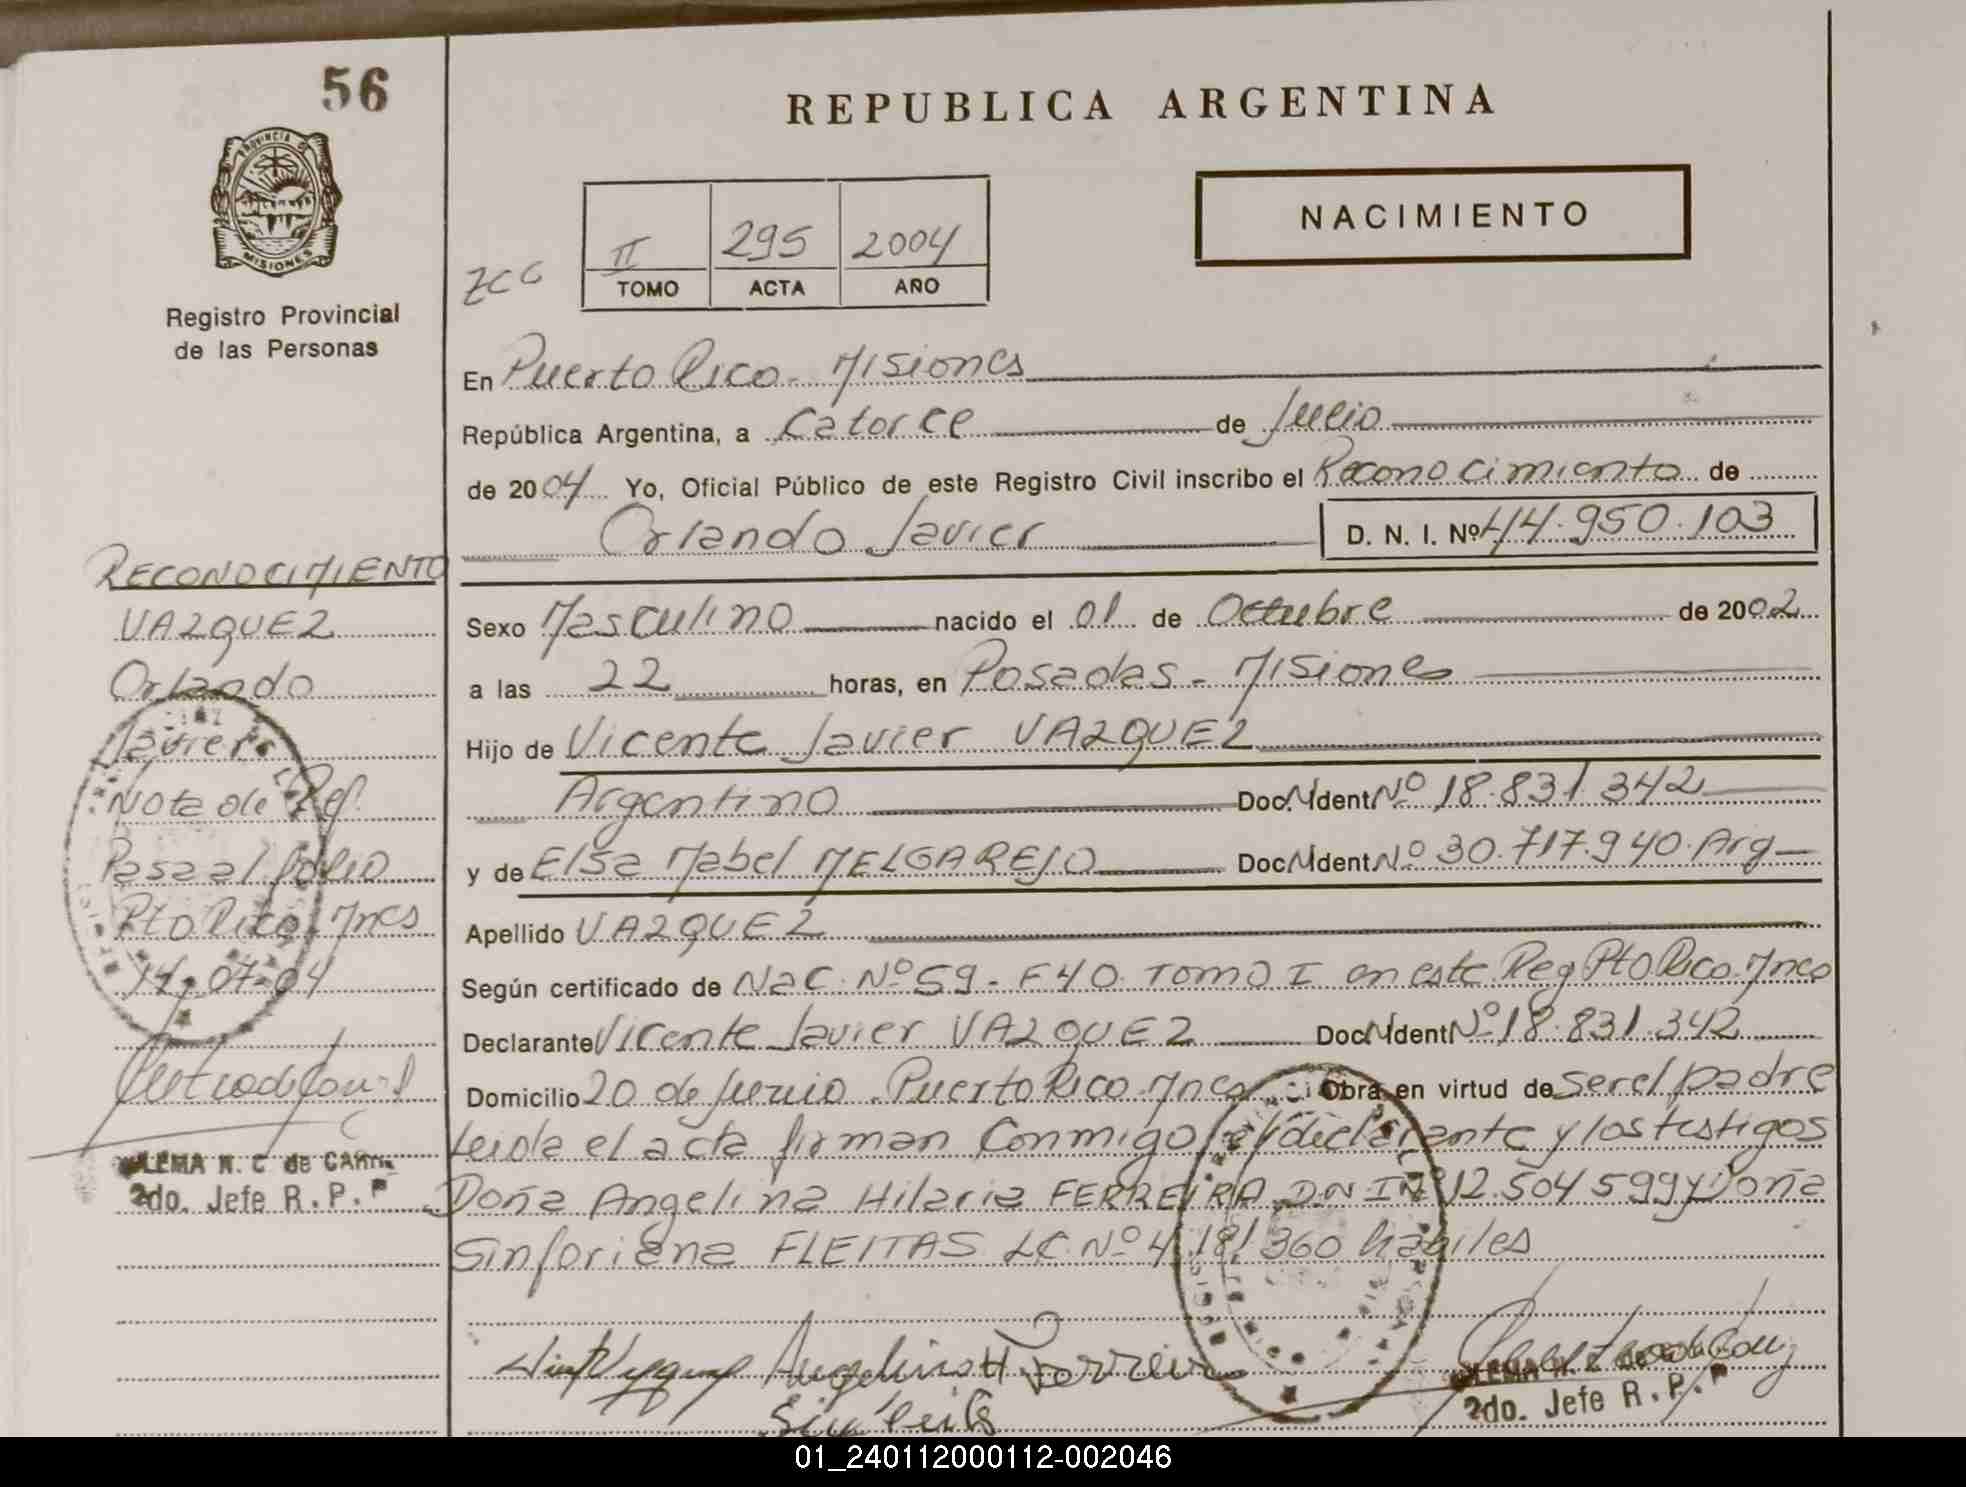 56
REPUBLICA ARGENTINA
PROVINCIA DE
MISIONES
Registro Provincial
de las Personas
NACIMIENTO
II 295 2004
TOMO ACTA AÑO
En Puerto Rico - Misiones
República Argentina, a Catorce de Julio
de 2004 Yo, Oficial Público de este Registro Civil inscribo el Reconocimiento de
Orlando Javier D. N. I. Nº 44.950.103
Sexo Masculino nacido el 01 de Octubre de 2002
a las 22 horas, en Posadas - Misiones
Hijo de Vicente Javier VAZQUEZ
Argentino Doc. Ident Nº 18.831.342
y de Elsa Mabel MELGAREJO Doc. Ident Nº 30.717.940. Arg
Apellido VAZQUEZ
Según certificado de Nac. Nº 59 - F 40. TOMO I en este Reg Pto Rico. Mnes
Declarante Vicente Javier VAZQUEZ Doc. Ident Nº 18.831.342
Domicilio 20 de Junio. Puerto Rico. Mnes Obra en virtud de ser el padre
Leida el acta firman Conmigo el declarante y los testigos
Doña Angelina Hilaria FERREIRA D.N.I Nº 12.504.599 y Doña
Sinforiana FLEITAS LC. Nº 4.181.360 hábiles
RECONOCIMIENTO
VAZQUEZ
Orlando
Javier
Nota de Ref.
Pasa al folio
Pto Rico. Mnes
14-07-04
2do. Jefe R.P.P
Angelina H Ferreira
2do. Jefe R.P.P
01_240112000112-002046